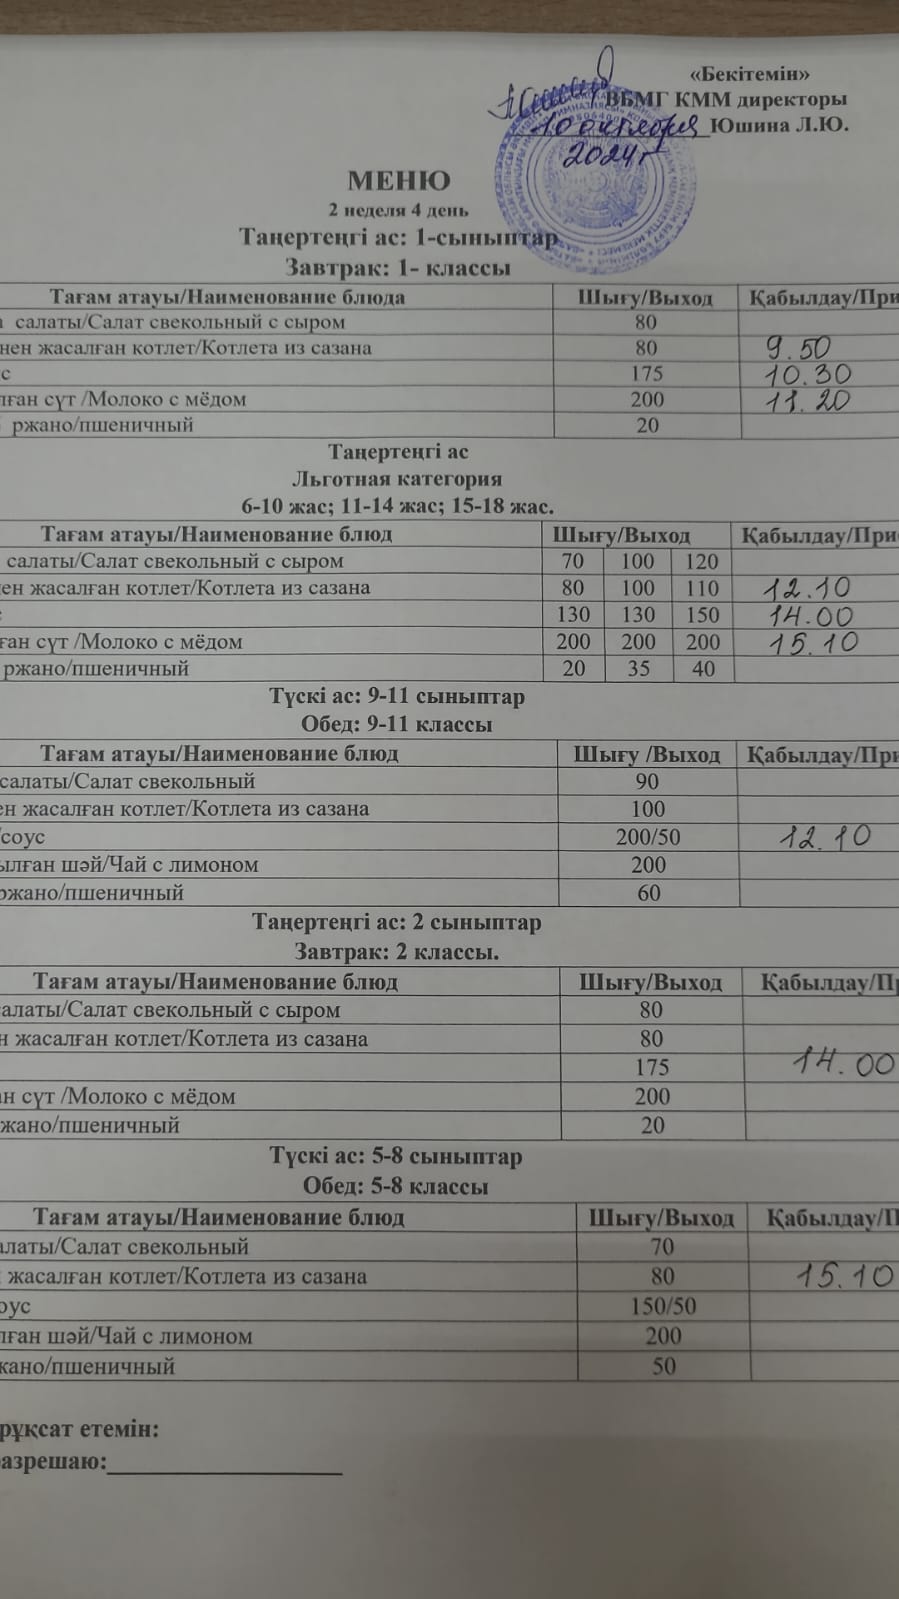 «Бекітемін»
ВБМГ КММ директоры
10 октября Юшина Л.Ю.
2024 г
МЕНЮ
2 неделя 4 день
Таңертеңгі ас: 1-сыныптар
Завтрак: 1- классы
Тағам атауы/Наименование блюда Шығу/Выход Қабылдау/При
салаты/Салат свекольный с сыром 80
нен жасалған котлет/Котлета из сазана 80 9.50
с 175 10.30
лған сүт /Молоко с мёдом 200 11.20
ржано/пшеничный 20
Таңертеңгі ас
Льготная категория
6-10 жас; 11-14 жас; 15-18 жас.
Тағам атауы/Наименование блюд Шығу/Выход Қабылдау/При
салаты/Салат свекольный с сыром 70 100 120
ен жасалған котлет/Котлета из сазана 80 100 110 12.10
130 130 150 14.00
ған сүт /Молоко с мёдом 200 200 200 15.10
ржано/пшеничный 20 35 40
Түскі ас: 9-11 сыныптар
Обед: 9-11 классы
Тағам атауы/Наименование блюд Шығу /Выход Қабылдау/При
салаты/Салат свекольный 90
ен жасалған котлет/Котлета из сазана 100
/соус 200/50 12.10
ылған шәй/Чай с лимоном 200
ржано/пшеничный 60
Таңертеңгі ас: 2 сыныптар
Завтрак: 2 классы.
Тағам атауы/Наименование блюд Шығу/Выход Қабылдау/Пр
салаты/Салат свекольный с сыром 80
н жасалған котлет/Котлета из сазана 80
175 14.00
ан сүт /Молоко с мёдом 200
жано/пшеничный 20
Түскі ас: 5-8 сыныптар
Обед: 5-8 классы
Тағам атауы/Наименование блюд Шығу/Выход Қабылдау/П
алаты/Салат свекольный 70
жасалған котлет/Котлета из сазана 80 15.10
оус 150/50
лған шәй/Чай с лимоном 200
жано/пшеничный 50
рұқсат етемін:
азрешаю: